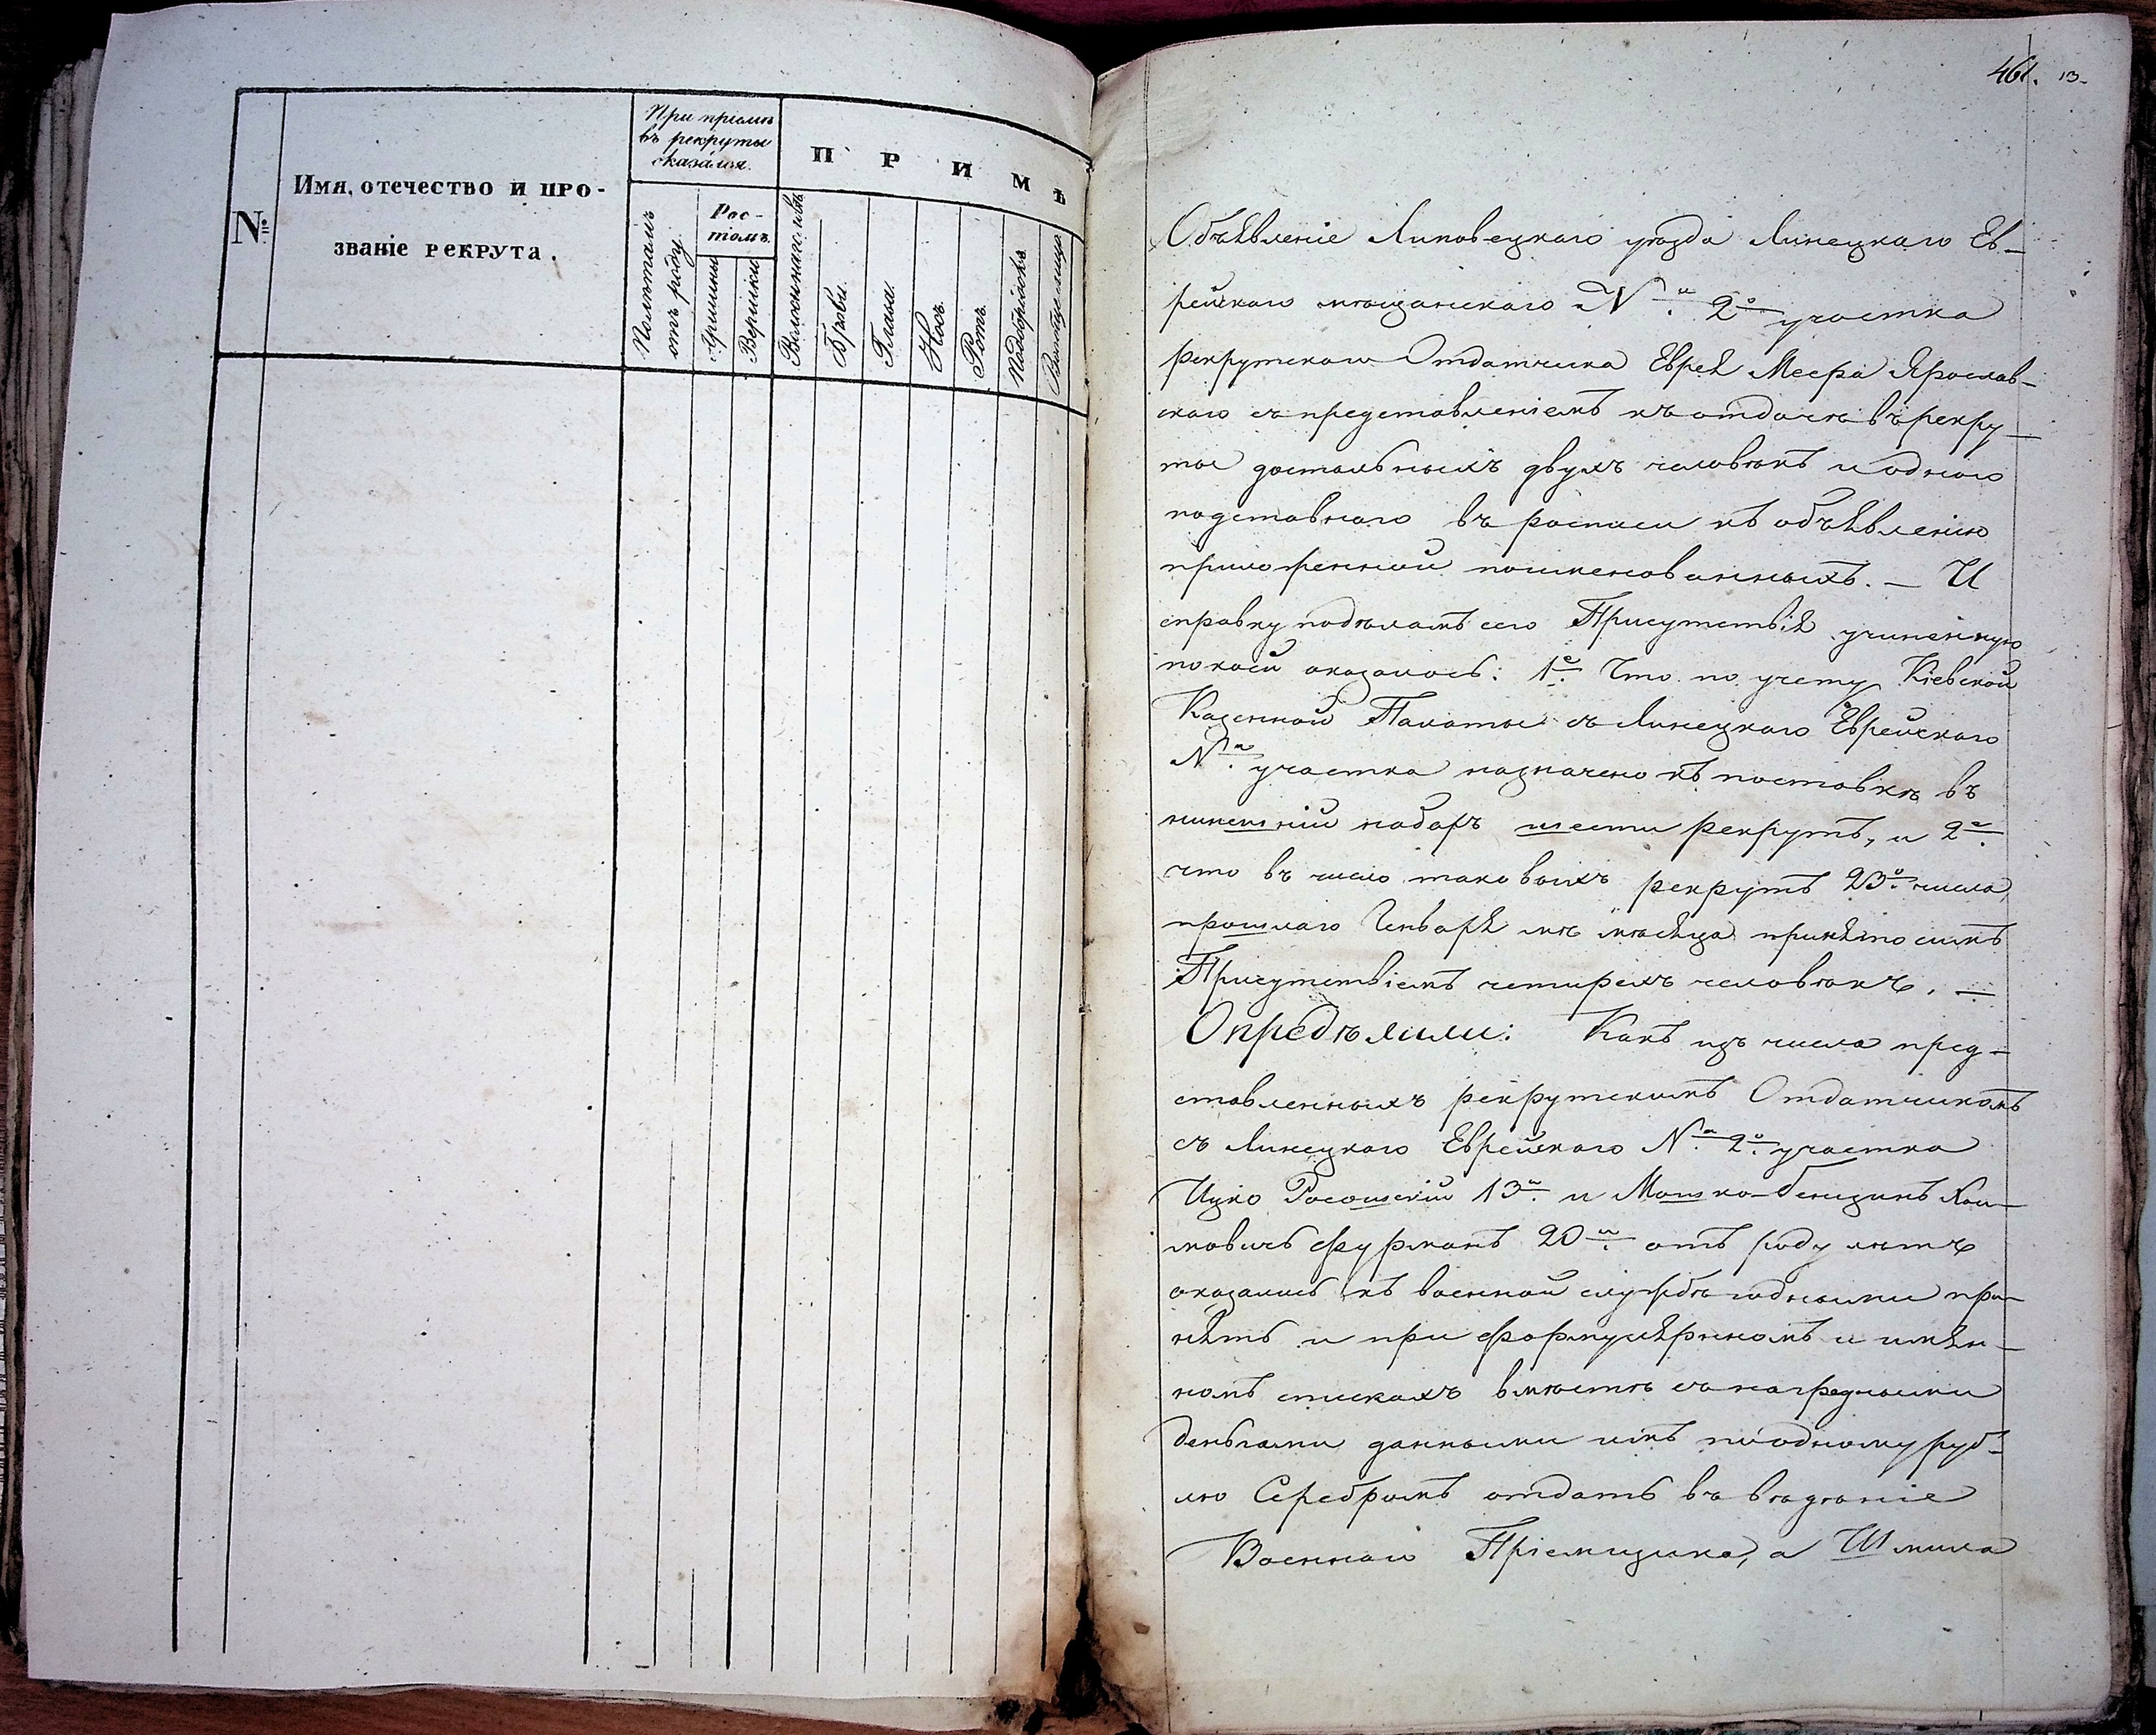 №
Имя, отечество и про-
званіе рекрута.
При пріемѣ
въ рекруты
сказался.
Полѣтамъ
отъ роду.
Рос-
томъ.
Аршины
Вершки
ПРИМѢ
Брови.
Глаза.
Носъ.
Ротъ.
Подбородокъ
461. 13.
Объявленіе Липовецкаго уѣзда Линецкаго Ев-
рейскаго мѣщанскаго №ра 2го участка
рекрутскаго Отдатчика Еврея Меера Ярослав-
скаго съ представленіемъ къ отдачѣ въ рекру-
ты достальныхъ двухъ человѣкъ и одного
подставнаго въ росписи къ объявленію
приложенной поименованныхъ. — И
справку подѣламъ сего Присутствія учиненную
по коей оказалось: 1е. Что по учету Кіевской
Казенной Палаты съ Линецкаго Еврейскаго
№ра участка назначено къ поставкѣ въ
нинешній наборъ шести рекрутъ, и 2е.
что въ число таковыхъ рекрутъ 23го числа
прошлаго Генваря мѣсяца принято симъ
Присутствіемъ четирехъ человѣкъ. —
Опредѣлили: Какъ изъ числа пред-
ставленныхъ рекрутскимъ Отдатчикомъ
съ Линецкаго Еврейскаго №ра 2го участка
Ицко Росошскій 13и. и Мошко-Бенцинъ Хаи-
мовичъ Фурманъ 20и. отъ роду лѣтъ
оказались къ военной службѣ годными при-
нять и при формулярномъ и имян-
номъ спискахъ вмѣстѣ съ наградными
деньгами данными имъ поодному руб-
лю Серебромъ отдать въ вѣденіе
Военнаго Пріемщика, а Шмила